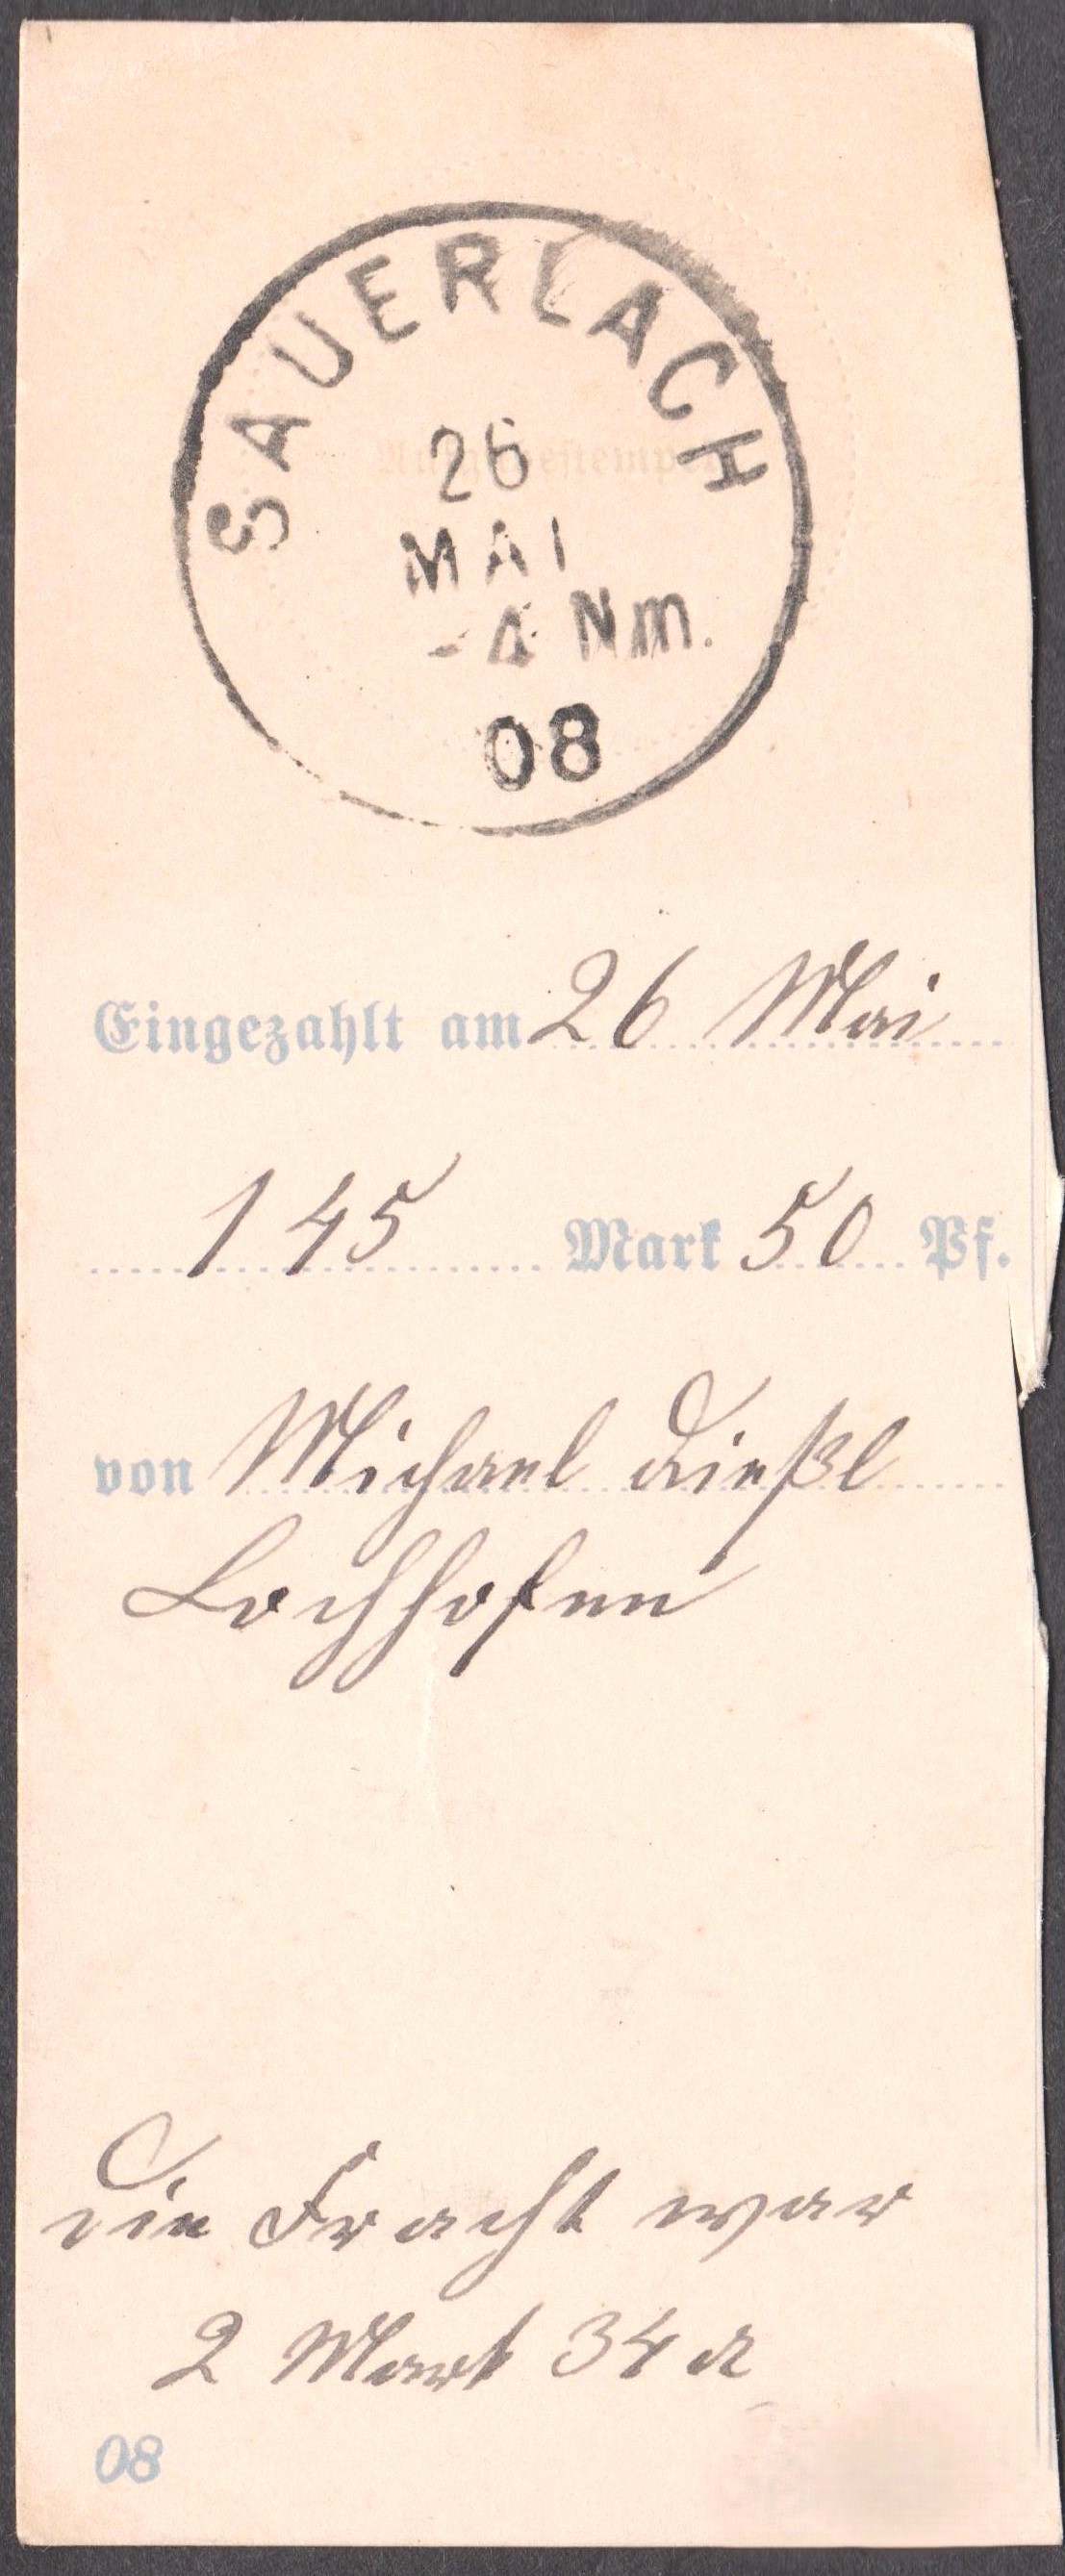 SAUERLACH
Aufgabestempel
26
MAI
-4 Nm.
08
Eingezahlt am 26 Mai
145 Mark 50 Pf.
von Michael Dießl
Lochhofen
Die Fracht war
2 Mark 34 ₰
08